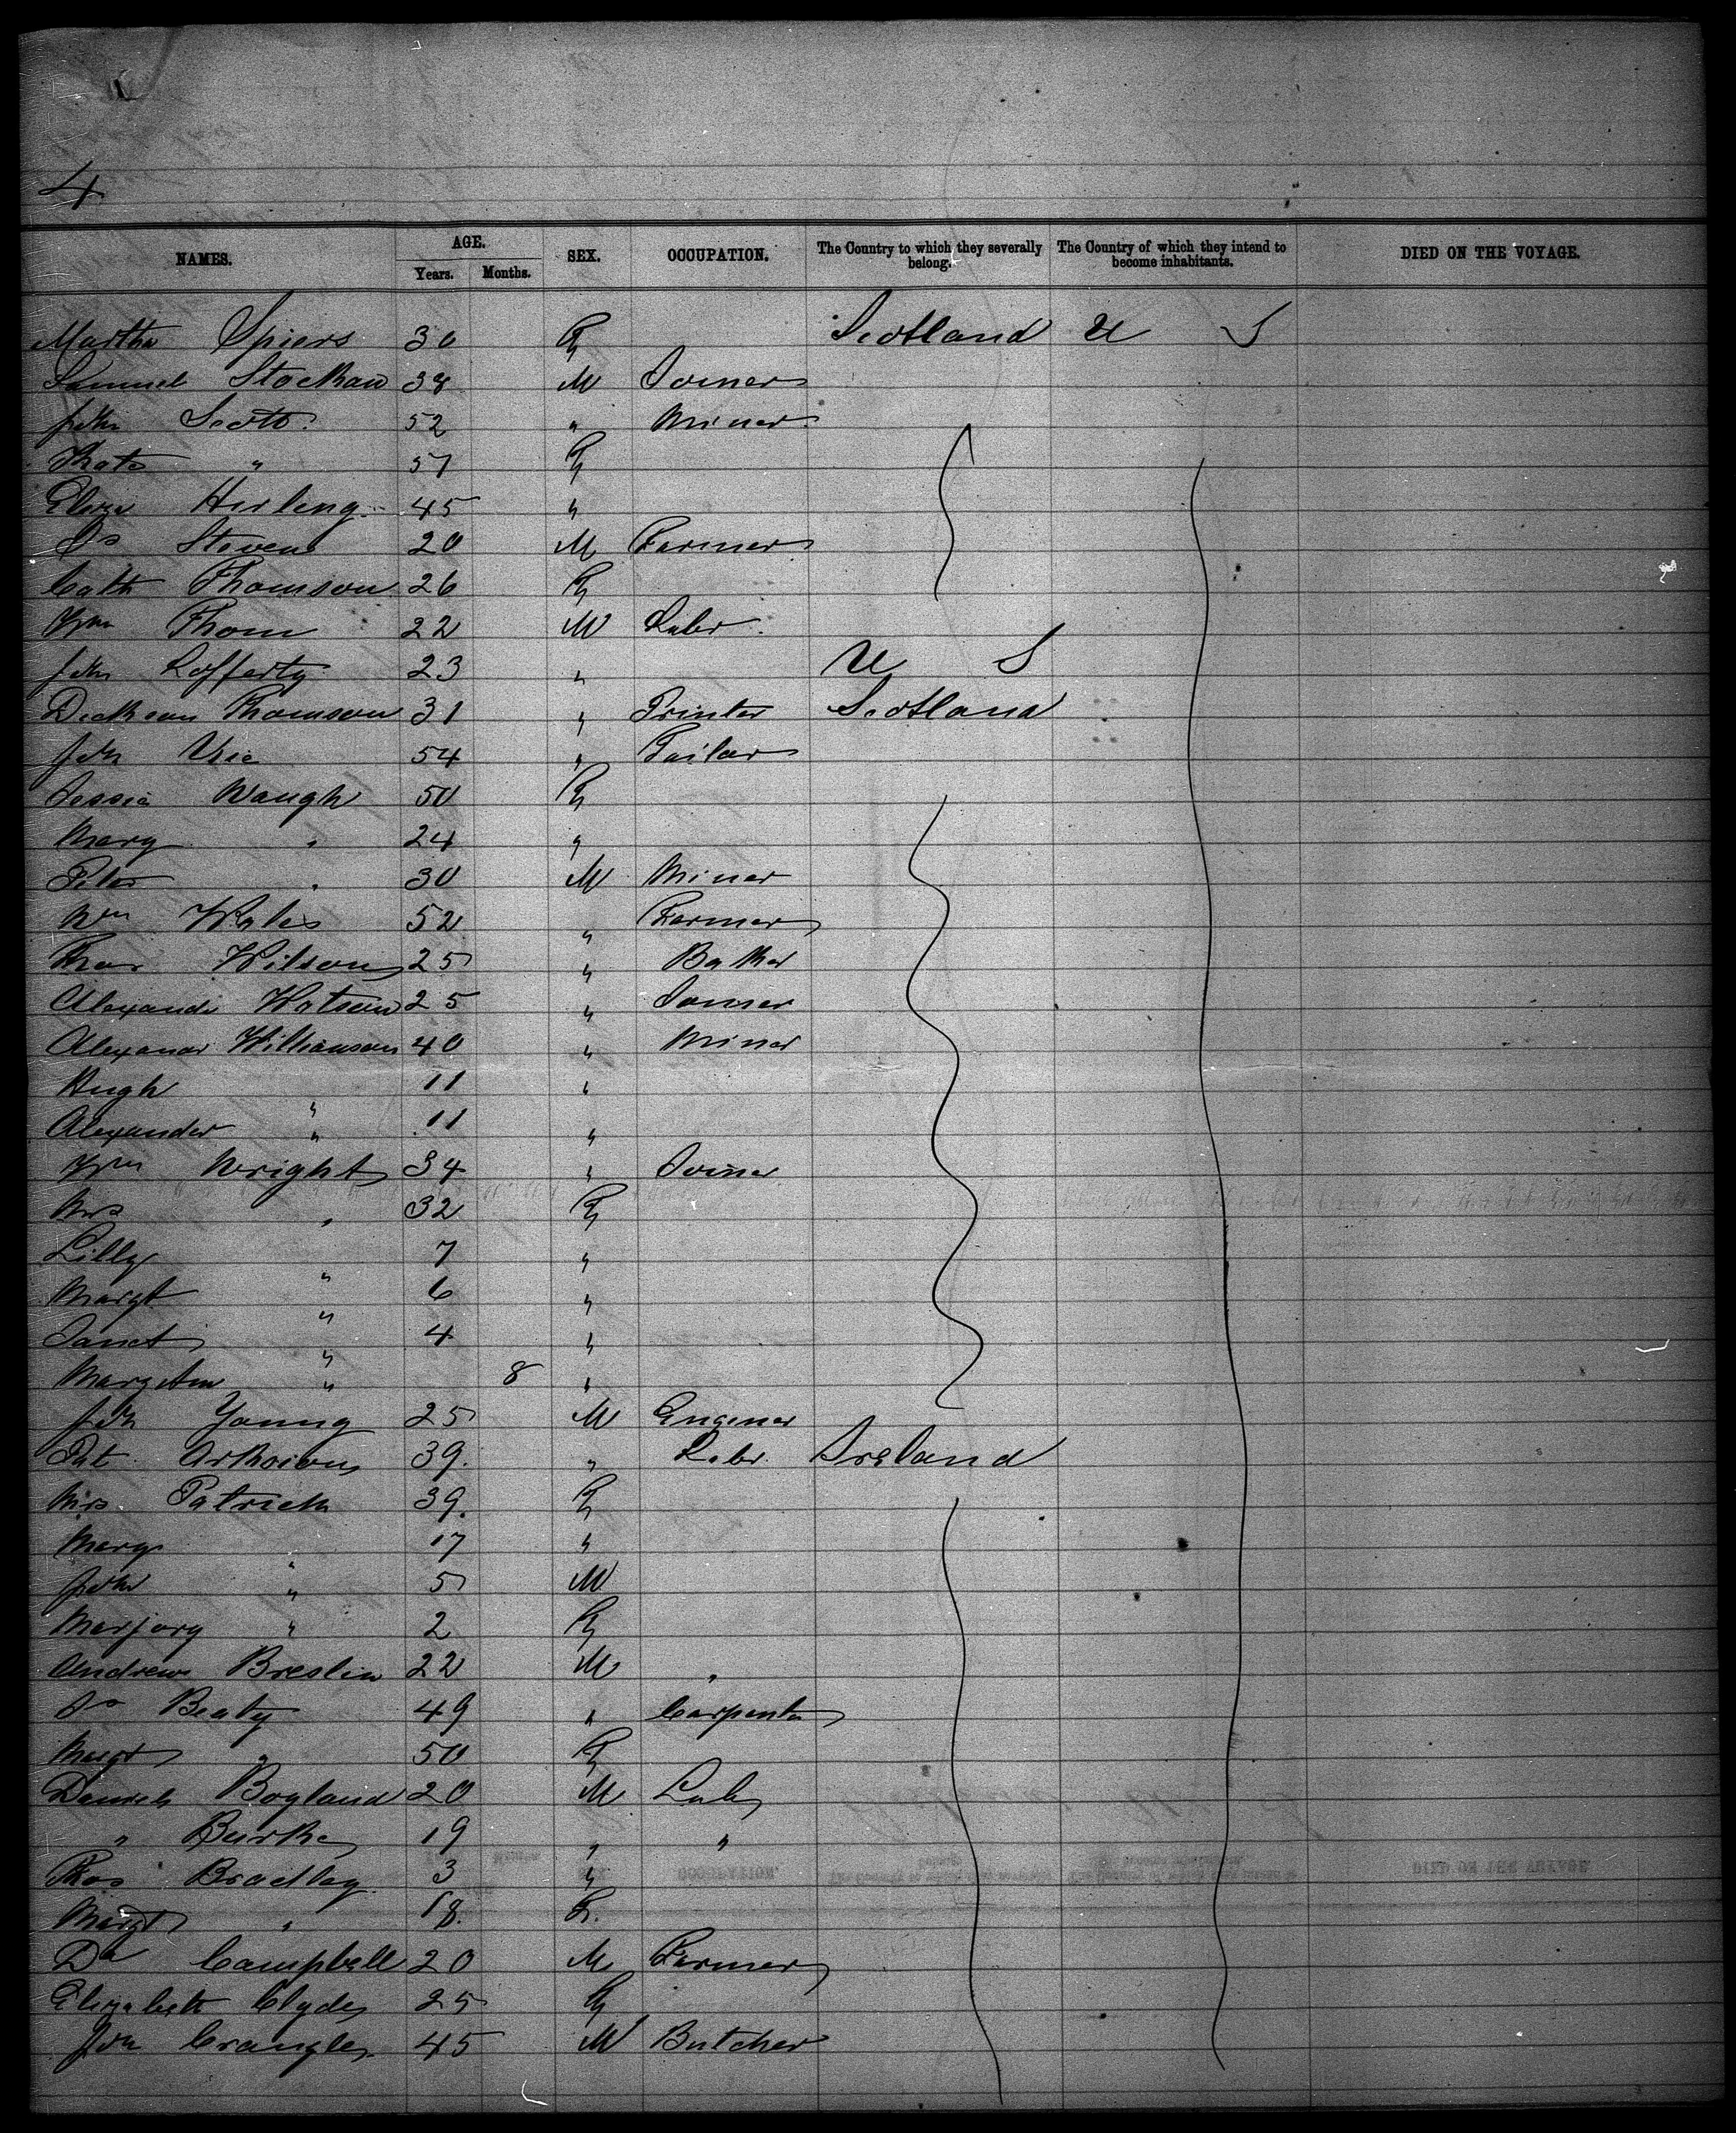 4
NAMES. AGE. SEX. OCCUPATION. The Country to which they severally belong. The Country of which they intend to become inhabitants. DIED ON THE VOYAGE.
Years. Months.
Martha Spiers 30 F Scotland U S
Samuel Stockan 38 M Joiner
John Scott 52 " Miner
Kate " 57 F
Eliza Hirling 45 "
Stevens 20 M Farmer
Cath Thomson 26 F
Wm Thom 22 M Labr
John Lofferty 23 " U S
Dickson Thomson 31 " Printer Scotland
John Urie 54 " Tailor
Jessie Waugh 50 F
Mary " 24 "
Peter " 30 M Miner
Wm Wales 52 " Farmer
Thos Wilson 25 " Baker
Alexande Watson 25 " Joiner
Alexandr Williamson 40 " Miner
Hugh " 11 "
Alexander " 11 "
Wm Wright 34 " Joiner
Mrs " 32 F
Lilly " 7 "
Margt " 6 "
Janet " 4 "
Mary Ann " 8 "
John Young 25 M Enginer
Pat 39 " Labr Ireland
Mrs Patrick 39 F
Mary " 17 "
John " 5 M
Marjory " 2 F
Andrew Breslin 22 M "
Js Beaty 49 " Carpenter
Margt " 50 F
Daniel Boyland 20 M Lab
" Burke 19 " "
Thos Bradley 3 "
Margt " 18 F.
Dd Campbell 20 M Farmer
Elizabeth Clyde 25 F
John Crangle 45 M Butcher